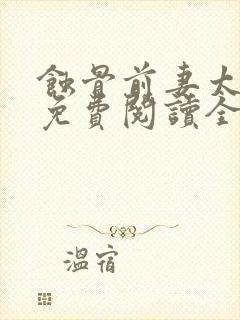 蝕骨前妻太
免費閱讀全
溫宿